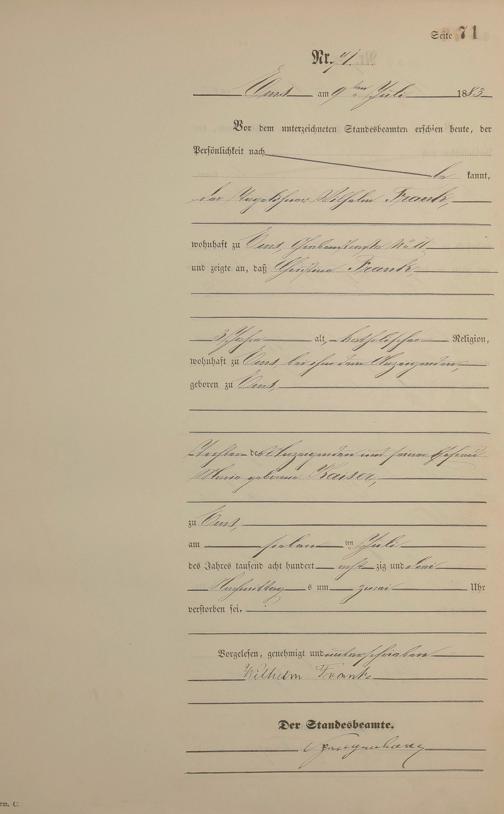 Seite 71
Nr. 71.
Ems am 9ten Juli 1883
Vor dem unterzeichneten Standesbeamten erschien heute, der
Persönlichkeit nach
be kannt,
der Tagelöhner Wilhelm Frank,
wohnhaft zu Ems,
und zeigte an, daß Christina Frank
3 Jahre alt, katholischer Religion,
wohnhaft zu Ems, bei ihm dem Anzeigenden,
geboren zu Ems,
Tochter des Anzeigenden und seiner Ehefrau
Maria geborene Kaiser,
zu Ems,
am sieben ten Juli
des Jahres tausend acht hundert acht zig und drei
Nachmittags um zwei Uhr
verstorben sei.
Vorgelesen, genehmigt und unterschrieben
Wilhelm Frank
Der Standesbeamte.